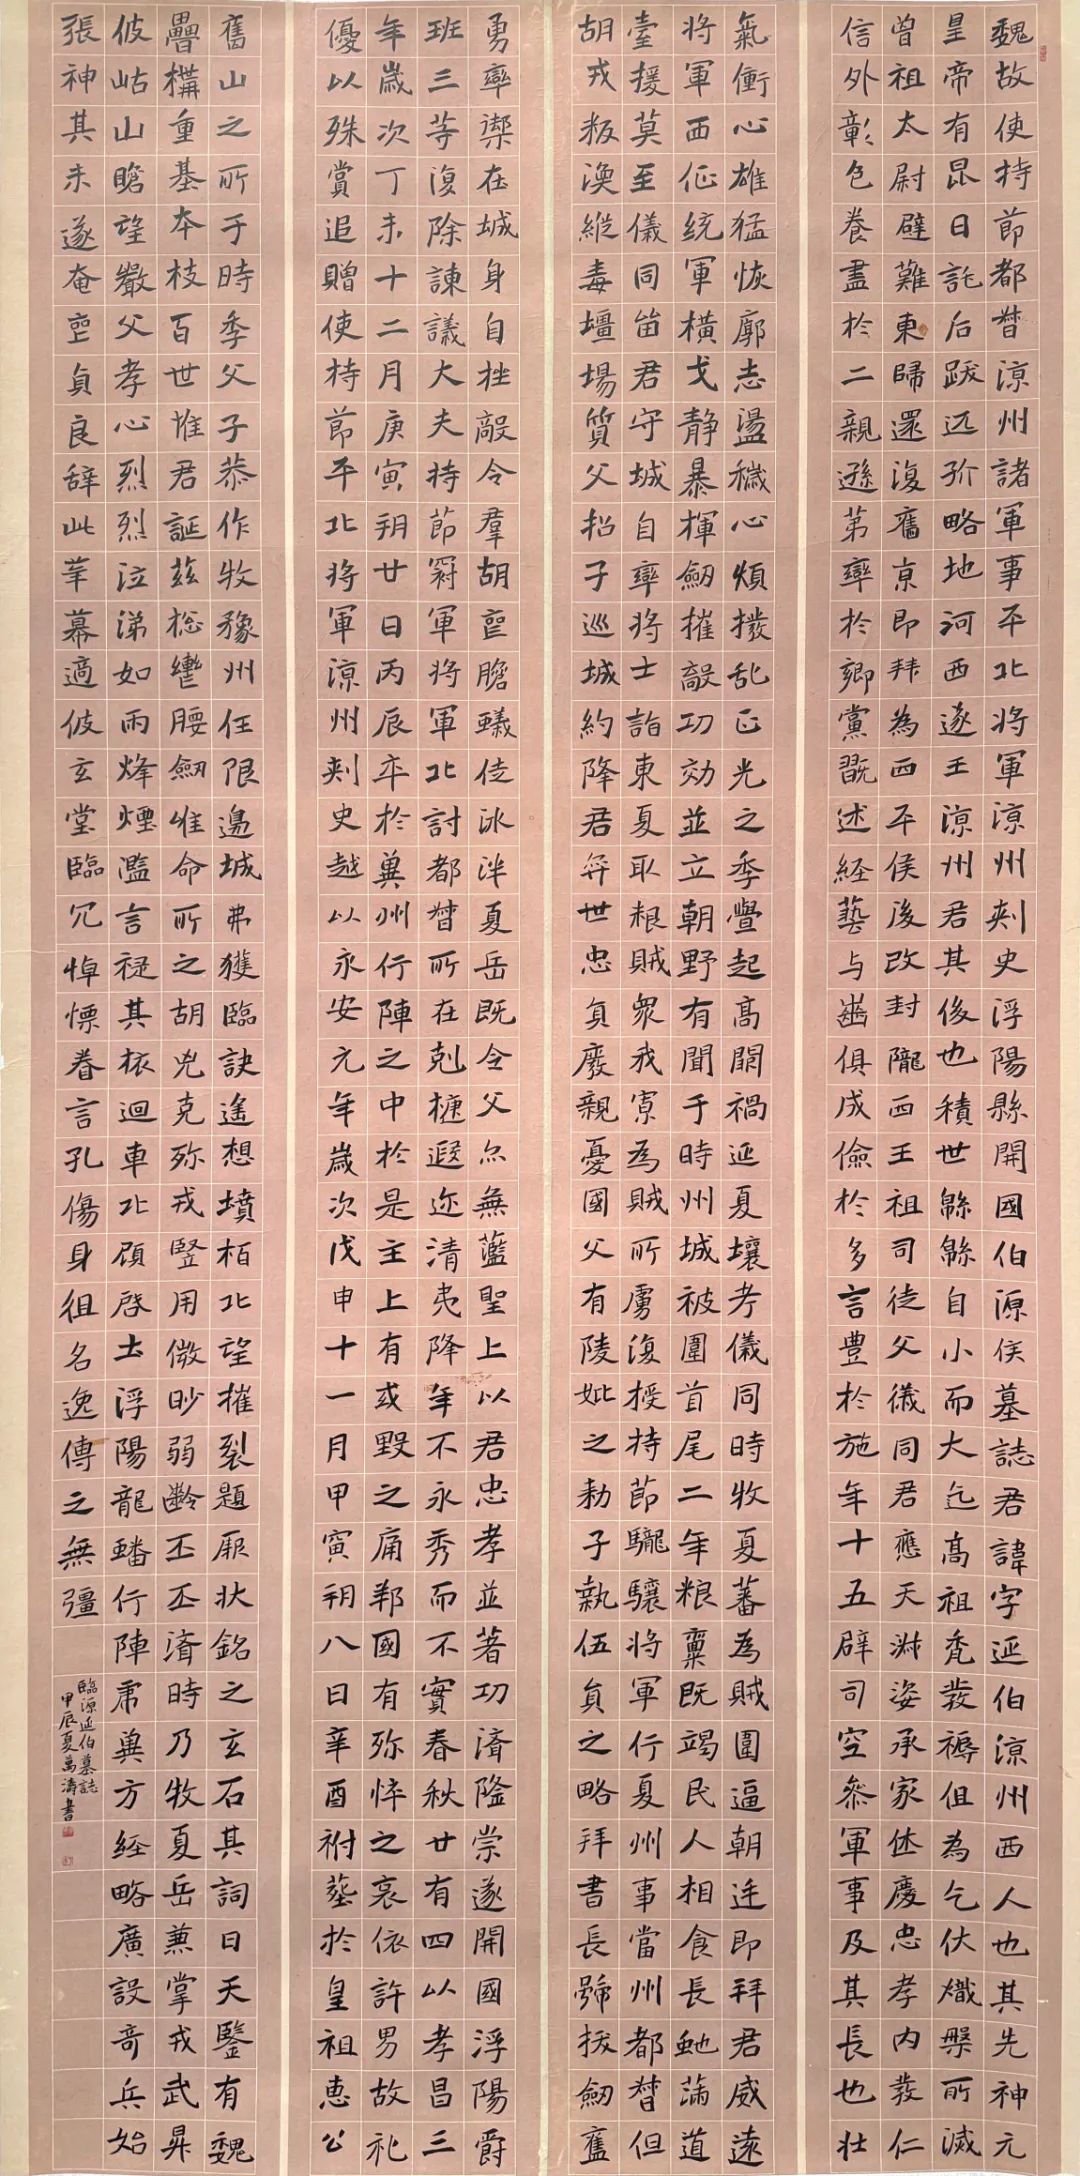 魏故使持節都督涼州諸軍事平北將軍涼州刺史浮陽縣開國伯源侯墓誌君諱字延伯涼州西人也其先神元
皇帝有昆曰託后跋远略地河西遂王涼州君其後也積世緜緜自小而大迄高祖禿髮褥但為乞伏熾槃所滅
曾祖太尉避難東歸還復舊京即拜為西平侯後改封隴西王祖司徒父儀同君應天淋姿承家休慶忠孝內發仁
信外彰色養盡於二親遜第率於鄉黨翫述經藝与齒俱成儉於多言豐於施年十五辟司空參軍事及其長也壯
氣衝心雄猛恢廓志盪穢心煩撥乱正光之季舋起高闕禍延夏壤考儀同時牧夏蕃為賊圍逼朝廷即拜君威遠
將軍西征統軍橫戈静暴揮劒摧敵功効並立朝野有聞于時州城被圍首尾二年粮稟既竭民人相食長虵蒲道
臺援莫至儀同留君守城自率將士詣東夏取粮賊眾我寡為賊所虜復授持節驪驤將軍行夏州事當州都督但
胡戎叛渙縱毒壃場質父招子巡城約降君弃世忠貞廢親憂國父有陵妣之勑子執伍員之略拜書長號拔劒舊
勇率禦在城身自挫敵令羣胡喪膽蟻徒冰泮夏岳既令父亦無藍聖上以君忠孝並著功濟隆崇遂開國浮陽爵
班三等復除諫議大夫持節冠軍將軍北討都督所在剋捷遐迩清夷降年不永秀而不實春秋廿有四以孝昌三
年歲次丁未十二月庚寅朔廿日丙辰卒於冀州行陣之中於是主上有或毀之痛邦國有弥悴之哀依許男故礼
優以殊賞追贈使持節平北將軍涼州刺史越以永安元年歲次戊申十一月甲寅朔八日辛酉祔葬於皇祖惠公
舊山之所于時季父子恭作牧豫州任限邊城弗獲臨訣遙想墳栢北望摧裂題厥狀銘之玄石其詞曰天鑒有魏
疊構重基本枝百世惟君誕兹揔轡腰劒惟命所之胡兇克殄戎豎用微眇弱齡丕丕濟時乃牧夏岳兼掌戎武昇
彼岵山瞻望巖父孝心烈烈泣涕如雨烽煙濫言其迴車北顧啓土浮陽龍蟠行陣肅冀方經略廣設奇兵始
張神其未遂奄喪貞良辭此華幕適彼玄堂臨穴悼慄眷言孔傷身徂名逸傳之無彊
臨源延伯墓誌
甲辰夏萬濤書